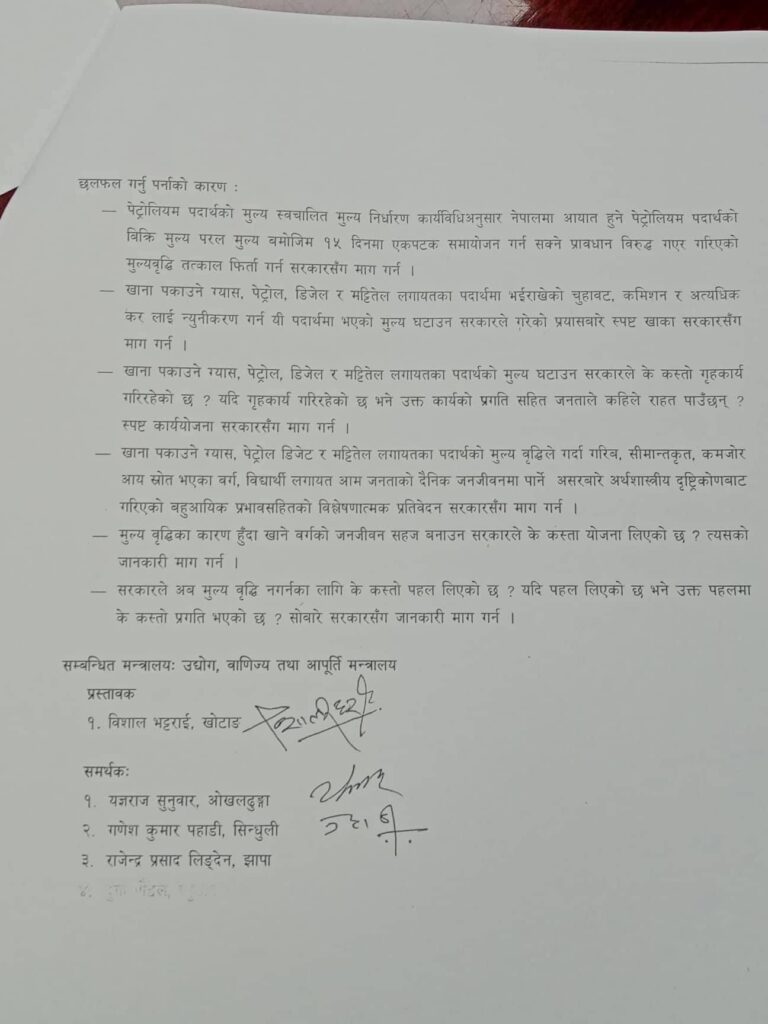 छलफल गर्नु पर्नाको कारण :
— पेट्रोलियम पदार्थको मुल्य स्वचालित मुल्य निर्धारण कार्यविधिअनुसार नेपालमा आयात हुने पेट्रोलियम पदार्थको
बिक्रि मुल्य परल मुल्य बमोजिम १५ दिनमा एकपटक समायोजन गर्न सक्ने प्रावधान विरुद्ध गएर गरिएको
मुल्यवृद्धि तत्काल फिर्ता गर्न सरकारसँग माग गर्न ।
— खाना पकाउने ग्यास, पेट्रोल, डिजेल र मट्टितेल लगायतका पदार्थमा भईराखेको चुहावट, कमिशन र अत्यधिक
कर लाई न्युनीकरण गर्न यी पदार्थमा भएको मुल्य घटाउन सरकारले गरेको प्रयासबारे स्पष्ट खाका सरकारसँग
माग गर्न ।
— खाना पकाउने ग्यास, पेट्रोल, डिजेल र मट्टितेल लगायतका पदार्थको मुल्य घटाउन सरकारले के कस्तो गृहकार्य
गरिरहेको छ ? यदि गृहकार्य गरिरहेको छ भने उक्त कार्यको प्रगति सहित जनताले कहिले राहत पाउँछन् ?
स्पष्ट कार्ययोजना सरकारसँग माग गर्न ।
— खाना पकाउने ग्यास, पेट्रोल डिजेट र मट्टितेल लगायतका पदार्थको मुल्य वृद्धिले गर्दा गरिब, सीमान्तकृत, कमजोर
आय स्रोत भएका वर्ग, विद्यार्थी लगायत आम जनताको दैनिक जनजीवनमा पार्ने असरबारे अर्थशास्त्रीय दृष्ट्रिकोणबाट
गरिएको बहुआयिक प्रभावसहितको विश्लेषणात्मक प्रतिवेदन सरकारसँग माग गर्न ।
— मुल्य वृद्धिका कारण हुँदा खाने वर्गको जनजीवन सहज बनाउन सरकारले के कस्ता योजना लिएको छ ? त्यसको
जानकारी माग गर्न ।
— सरकारले अब मुल्य वृद्धि नगर्नका लागि के कस्तो पहल लिएको छ ? यदि पहल लिएको छ भने उक्त पहलमा
के कस्तो प्रगति भएको छ ? सोबारे सरकारसँग जानकारी माग गर्न ।
सम्बन्धित मन्त्रालयः उद्योग, वाणिज्य तथा आपूर्ति मन्त्रालय
प्रस्तावक
१. विशाल भट्टराई, खोटाङ
समर्थकः
१. यज्ञराज सुनुवार, ओखलढुङ्गा
२. गणेश कुमार पहाडी, सिन्धुली
३. राजेन्द्र प्रसाद लिङ्देन, झापा
४.